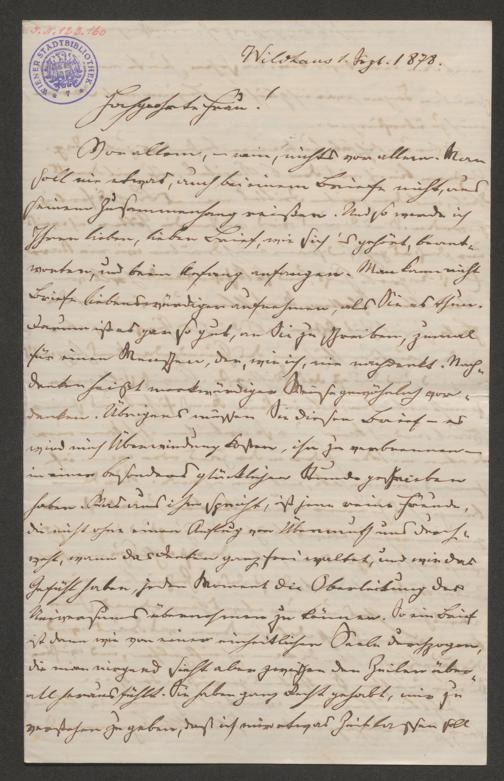 J.N. 123.160
WIENER STADTBIBLIOTHEK
Wildhaus 1. Sept. 1878.
Hochgeehrte Frau!
Vor allem, – nein, nichts vor allem. Man
soll nie etwas, auch bei einem Briefe nicht, aus
seinem Zusammenhang reißen. Und so werde ich
Ihren lieben, lieben Brief, wie sich's gehört, beant-
worten, und beim Anfang anfangen. Man kann nicht
Briefe liebenswürdiger aufnehmen, als Sie es thun.
Darum ist es gar so gut, an Sie zu schreiben, zumal
für einen Menschen, der, wie ich, nie nachdenkt. Nach-
denken heißt merkwürdiger Weise gewöhnlich vor-
denken. Übrigens müssen Sie diesen Brief – es
wird mich Überwindung kosten, ihn zu verbrennen –
in einer besonders glücklichen Stunde geschrieben
haben. Was aus ihm spricht, ist jene reine Freude,
die nicht ohne einen Anflug von Übermuth uns durch-
weht, wann das Denken ganz frei waltet, und wir das
Gefühl haben, jeden Moment die Oberleitung des
Universums übernehmen zu können. So ein Brief
ist dann wie von einer einheitlichen Seele durchzogen,
die man nirgend sieht aber zwischen den Zeilen über-
all herausfühlt. Sie haben ganz Recht gehabt, mir zu
verstehen zu geben, daß ich mir etwas Zeit lassen soll